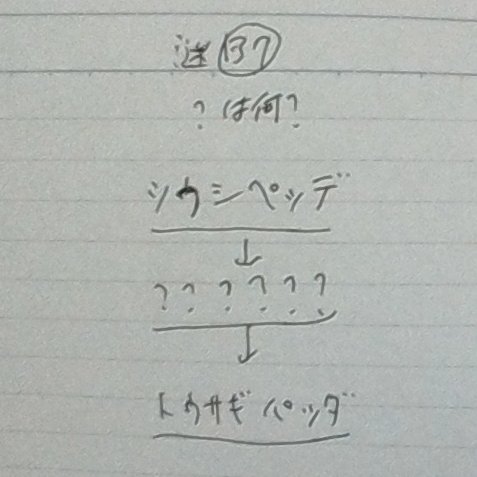 謎 137
? は何?
ツウシペッデ
↓
? ? ? ? ? ?
↓
トウサギパッダ